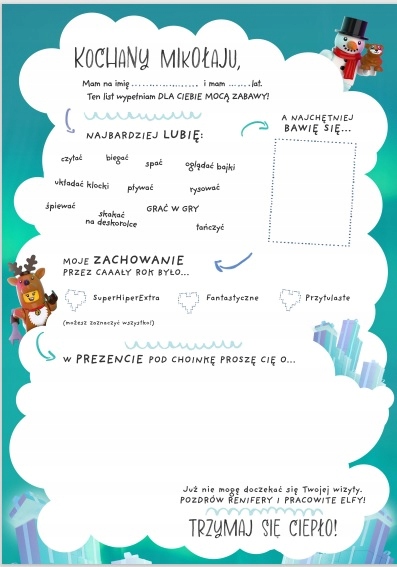 KOCHANY MIKOŁAJU,
Mam na imię .................... i mam ....... lat.
Ten list wypełniam DLA CIEBIE MOCĄ ZABAWY!
NAJBARDZIEJ LUBIĘ:
czytać biegać spać oglądać bajki
układać klocki pływać rysować
śpiewać skakać na deskorolce GRAĆ W GRY tańczyć
A NAJCHĘTNIEJ
BAWIĘ SIĘ...
MOJE ZACHOWANIE
PRZEZ CAAAŁY ROK BYŁO...
SuperHiperExtra Fantastyczne Przytulaste
(możesz zaznaczyć wszystko!)
W PREZENCIE POD CHOINKĘ PROSZĘ CIĘ O...
Już nie mogę doczekać się Twojej wizyty.
POZDRÓW RENIFERY I PRACOWITE ELFY!
TRZYMAJ SIĘ CIEPŁO!